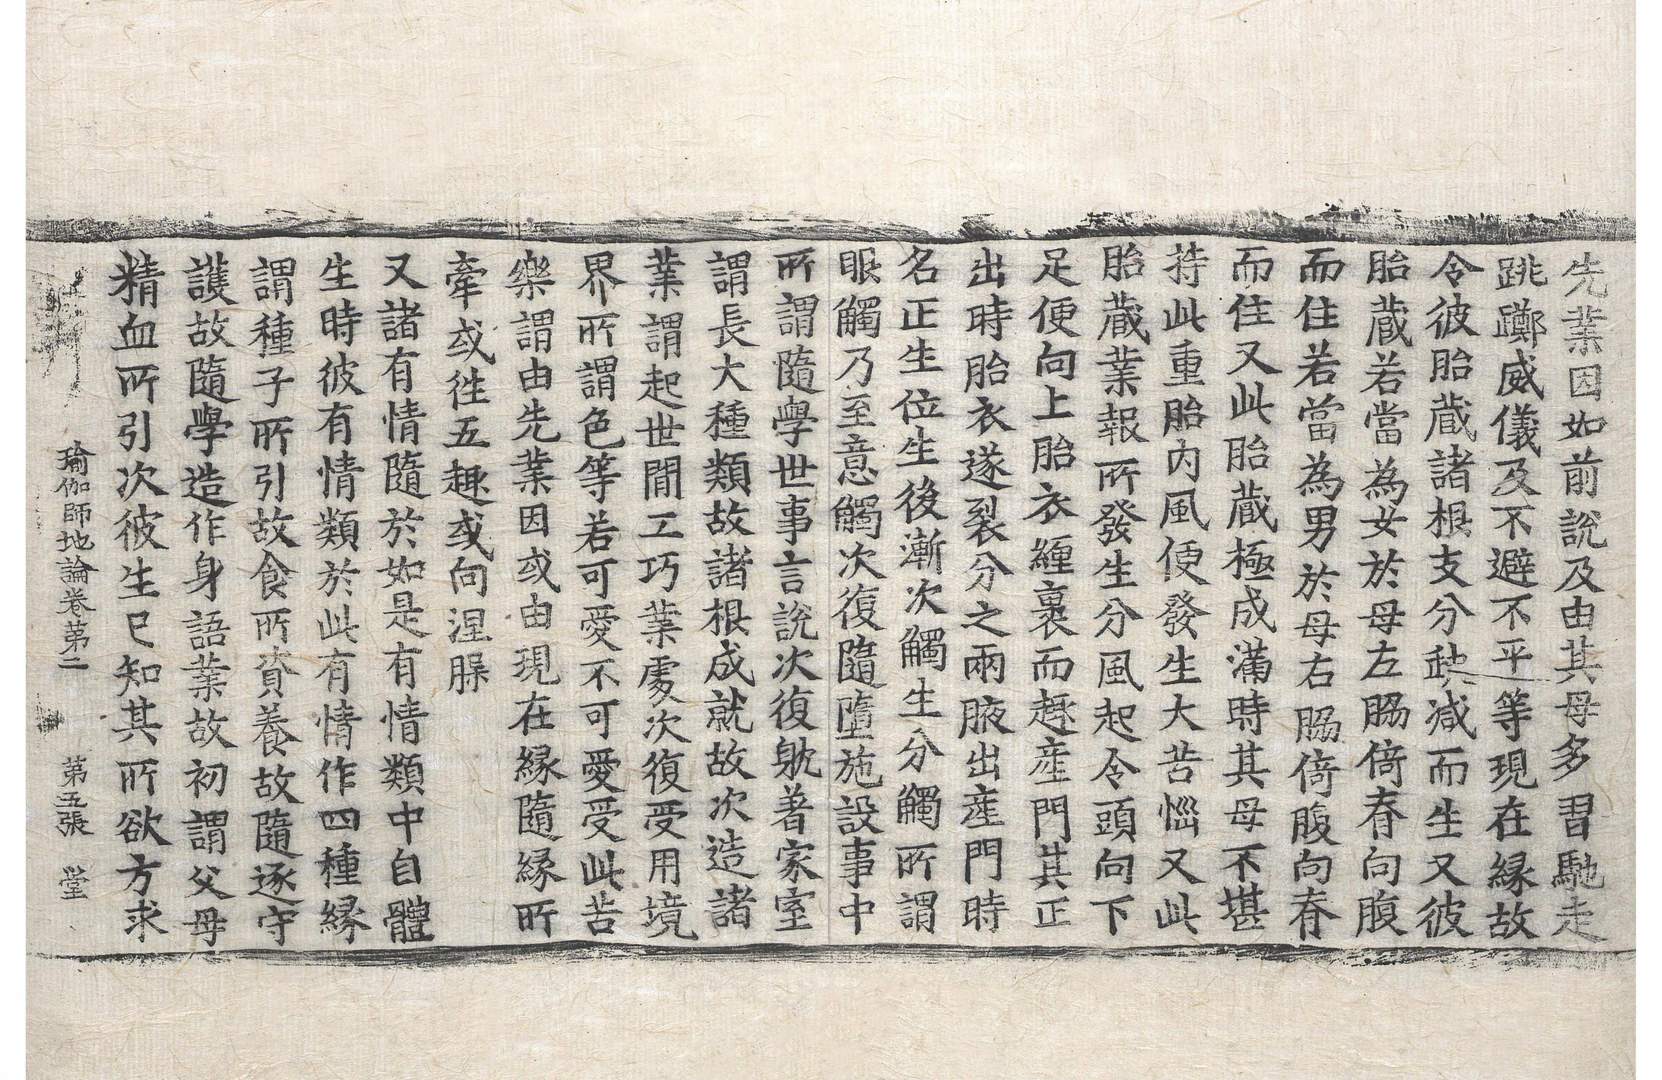 先業因如前說及由其母多習馳走
跳躑威儀及不避不平等現在緣故
令彼胎藏諸根支分缺減而生又彼
胎藏若當為女於母左脇倚脊向腹
而住若當為男於母右脇倚腹向脊
而住又此胎藏極成滿時其母不堪
持此重胎內風便發生大苦惱又此
胎藏業報所發生分風起令頭向下
足便向上胎衣纏裹而趣產門其正
出時胎衣遂裂分之兩腋出產門時
名正生位生後漸次觸生分觸所謂
眼觸乃至意觸次復隨墮施設事中
所謂隨學世事言說次復躭著家室
謂長大種類故諸根成就故次造諸
業謂起世間工巧業處次復受用境
界所謂色等若可愛不可愛受此苦
樂謂由先業因或由現在緣隨緣所
牽或徃五趣或向涅槃
又諸有情隨於如是有情類中自體
生時彼有情類於此有情作四種緣
謂種子所引故食所資養故隨逐守
護故隨學造作身語業故初謂父母
精血所引次彼生已知其所欲方求
瑜伽師地論卷第二 第五張 堂